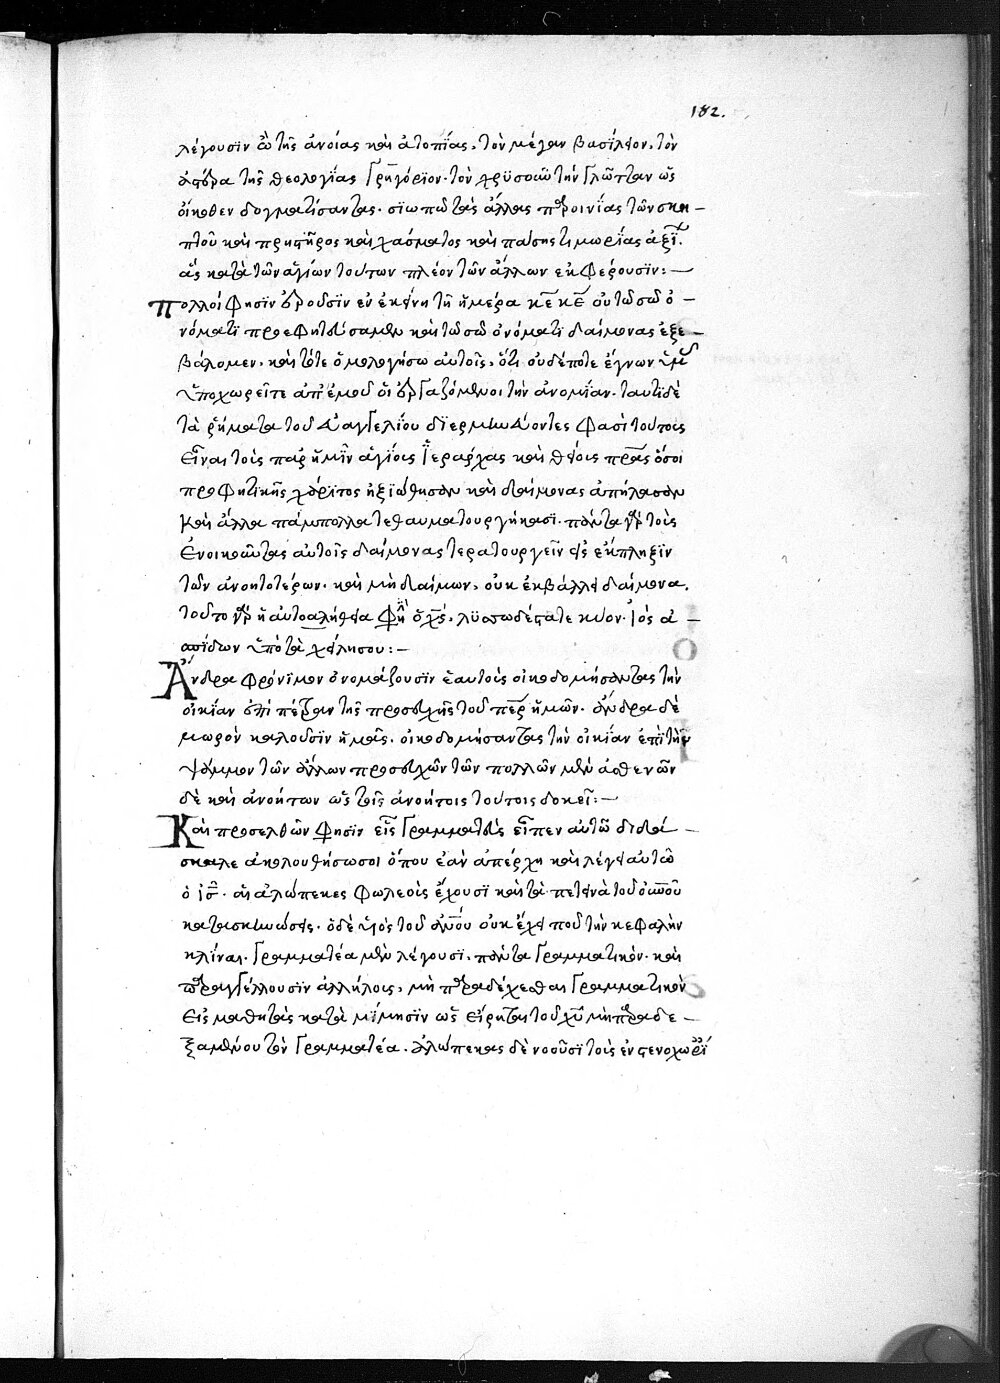 182.
λέγουσιν ὢ τῆς ἀνοίας καὶ ἀτοπίας, τὸν μέγαν βασίλειον, τὸν
ἀστέρα τῆς θεολογίας Γρηγόριον· τὸν χρυσοῦν τὴν γλῶτταν ὡς
οἴκοθεν δογματίσαντας· σιωπῶ τὰς ἄλλας παροινίας τῶν σκη–
πτοῦ καὶ πρηστῆρος καὶ χάσματος καὶ πάσης τιμωρίας ἀξί
ας κατὰ τῶν ἁγίων τούτων πλέον τῶν ἄλλων ἐκφέρουσιν:—
πολλοί φησιν ἐροῦσιν ἐν ἐκείνῃ τῇ ἡμέρα κε κε οὐ τῶ σῶ ὀ–
νόματι προεφητεύσαμεν καὶ τῶ σῶ ὀνόματι δαίμονας ἐξε–
βάλομεν, καὶ τότε ὁμολογήσω αὐτοῖς, ὅτι οὐδέποτε ἔγνων ὑμᾶς
ὑποχωρεῖτε ἀπ' ἐμοῦ οἱ ἐργαζόμενοι τὴν ἀνομίαν· ταυτὶ δὲ
τὰ ῥήματα τοῦ εὐαγγελίου διερμηνεύοντες φασὶ τούτοις
εἶναι τοὺς παρ' ἡμῖν ἁγίοις ἱεράρχας καὶ θείοις πρας ὅσοι
προφητικῆς χάριτος ἠξιώθησαν καὶ δαίμονας ἀπήλασαν
καὶ ἄλλα πάμπολλα τεθαυματουργήκασι· πάντα γὰρ τοὺς
ἐνοικοῦντας αὐτοῖς δαίμονας τερατουργεῖν εἰς ἔκπληξιν
τῶν ἀνοητοτέρων· καὶ μὴν δαίμων, οὐκ ἐκβάλλει δαίμονα.
τοῦτο γὰρ ἡ αὐτοαλήθεια φη ὁ χς, λυσσωδέστατε κύον· ἰὸς ἀ–
σπίδων ὑπὸ τὰ χείλη σου:—
Ἄνδρα φρόνιμον ὀνομάζουσιν ἑαυτοὺς οἰκοδομήσαντας τὴν
οἰκίαν ἐπὶ πέτραν τῆς προσευχῆς τοῦ περ ἡμῶν· ἄνδρα δὲ
μωρὸν καλοῦσιν ἡμᾶς, οἰκοδομήσαντας τὴν οἰκίαν ἐπὶ τὴν
ψάμμον τῶν ἄλλων προσευχῶν τῶν πολλῶν μὲν ἀσθενῶν
δὲ καὶ ἀνοήτων ὡς τοῖς ἀνοήτοις τούτοις δοκεῖ:—
Καὶ προσελθὼν φησὶν εἷς γραμματεὺς εἶπεν αὐτῶ διδά–
σκαλε ἀκολουθήσω σοι ὅπου ἐὰν ἀπέρχη καὶ λέγει αὐτῶ
ὁ ις· αἱ αλώπεκες φωλεοὺς ἔχουσι καὶ τὰ πετεινὰ τοῦ οὐνοῦ
κατασκηνώσεις· ὁ δὲ υἱὸς τοῦ ἀνου οὐκ ἔχει ποῦ τὴν κεφαλὴν
κλίναι· Γραμματέα μὲν λέγουσι, πάντα γραμματικόν· καὶ
παραγγέλλουσιν ἀλλήλοις, μὴ παραδέχεσθαι γραμματικὸν
εἰς μαθητὰς κατὰ μίμησιν ὡς εἴρηται τοῦ χυ μὴ παραδε–
ξαμένου τὸν γραμματέα. ἀλώπεκας δὲ νοοῦσι τοὺς ἐν στενοχωρί